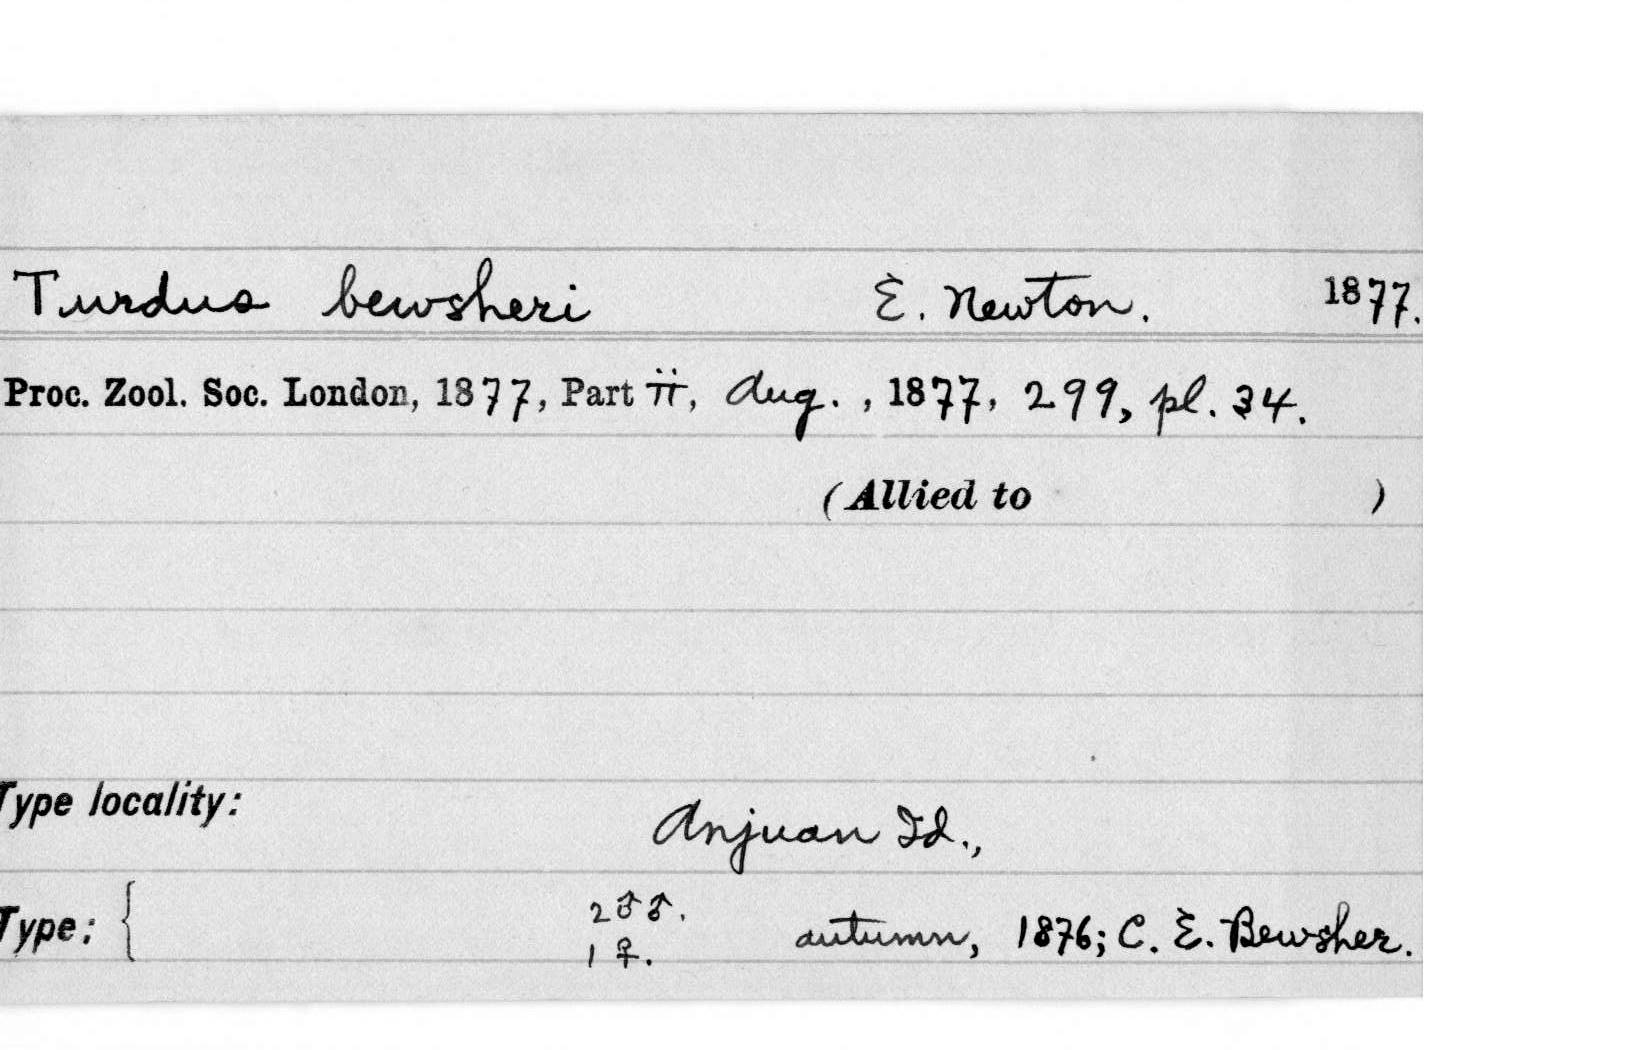 Turdus bewsheri E. Newton. 1877.
Proc. Zool. Soc. London, 1877, Part ii, Aug. , 1877, 299, pl. 34.
(Allied to )
Type locality:
Anjuan Id.,
Type: { 2 ♂♂. autumn, 1876; C. E. Bewsher.
1 ♀.